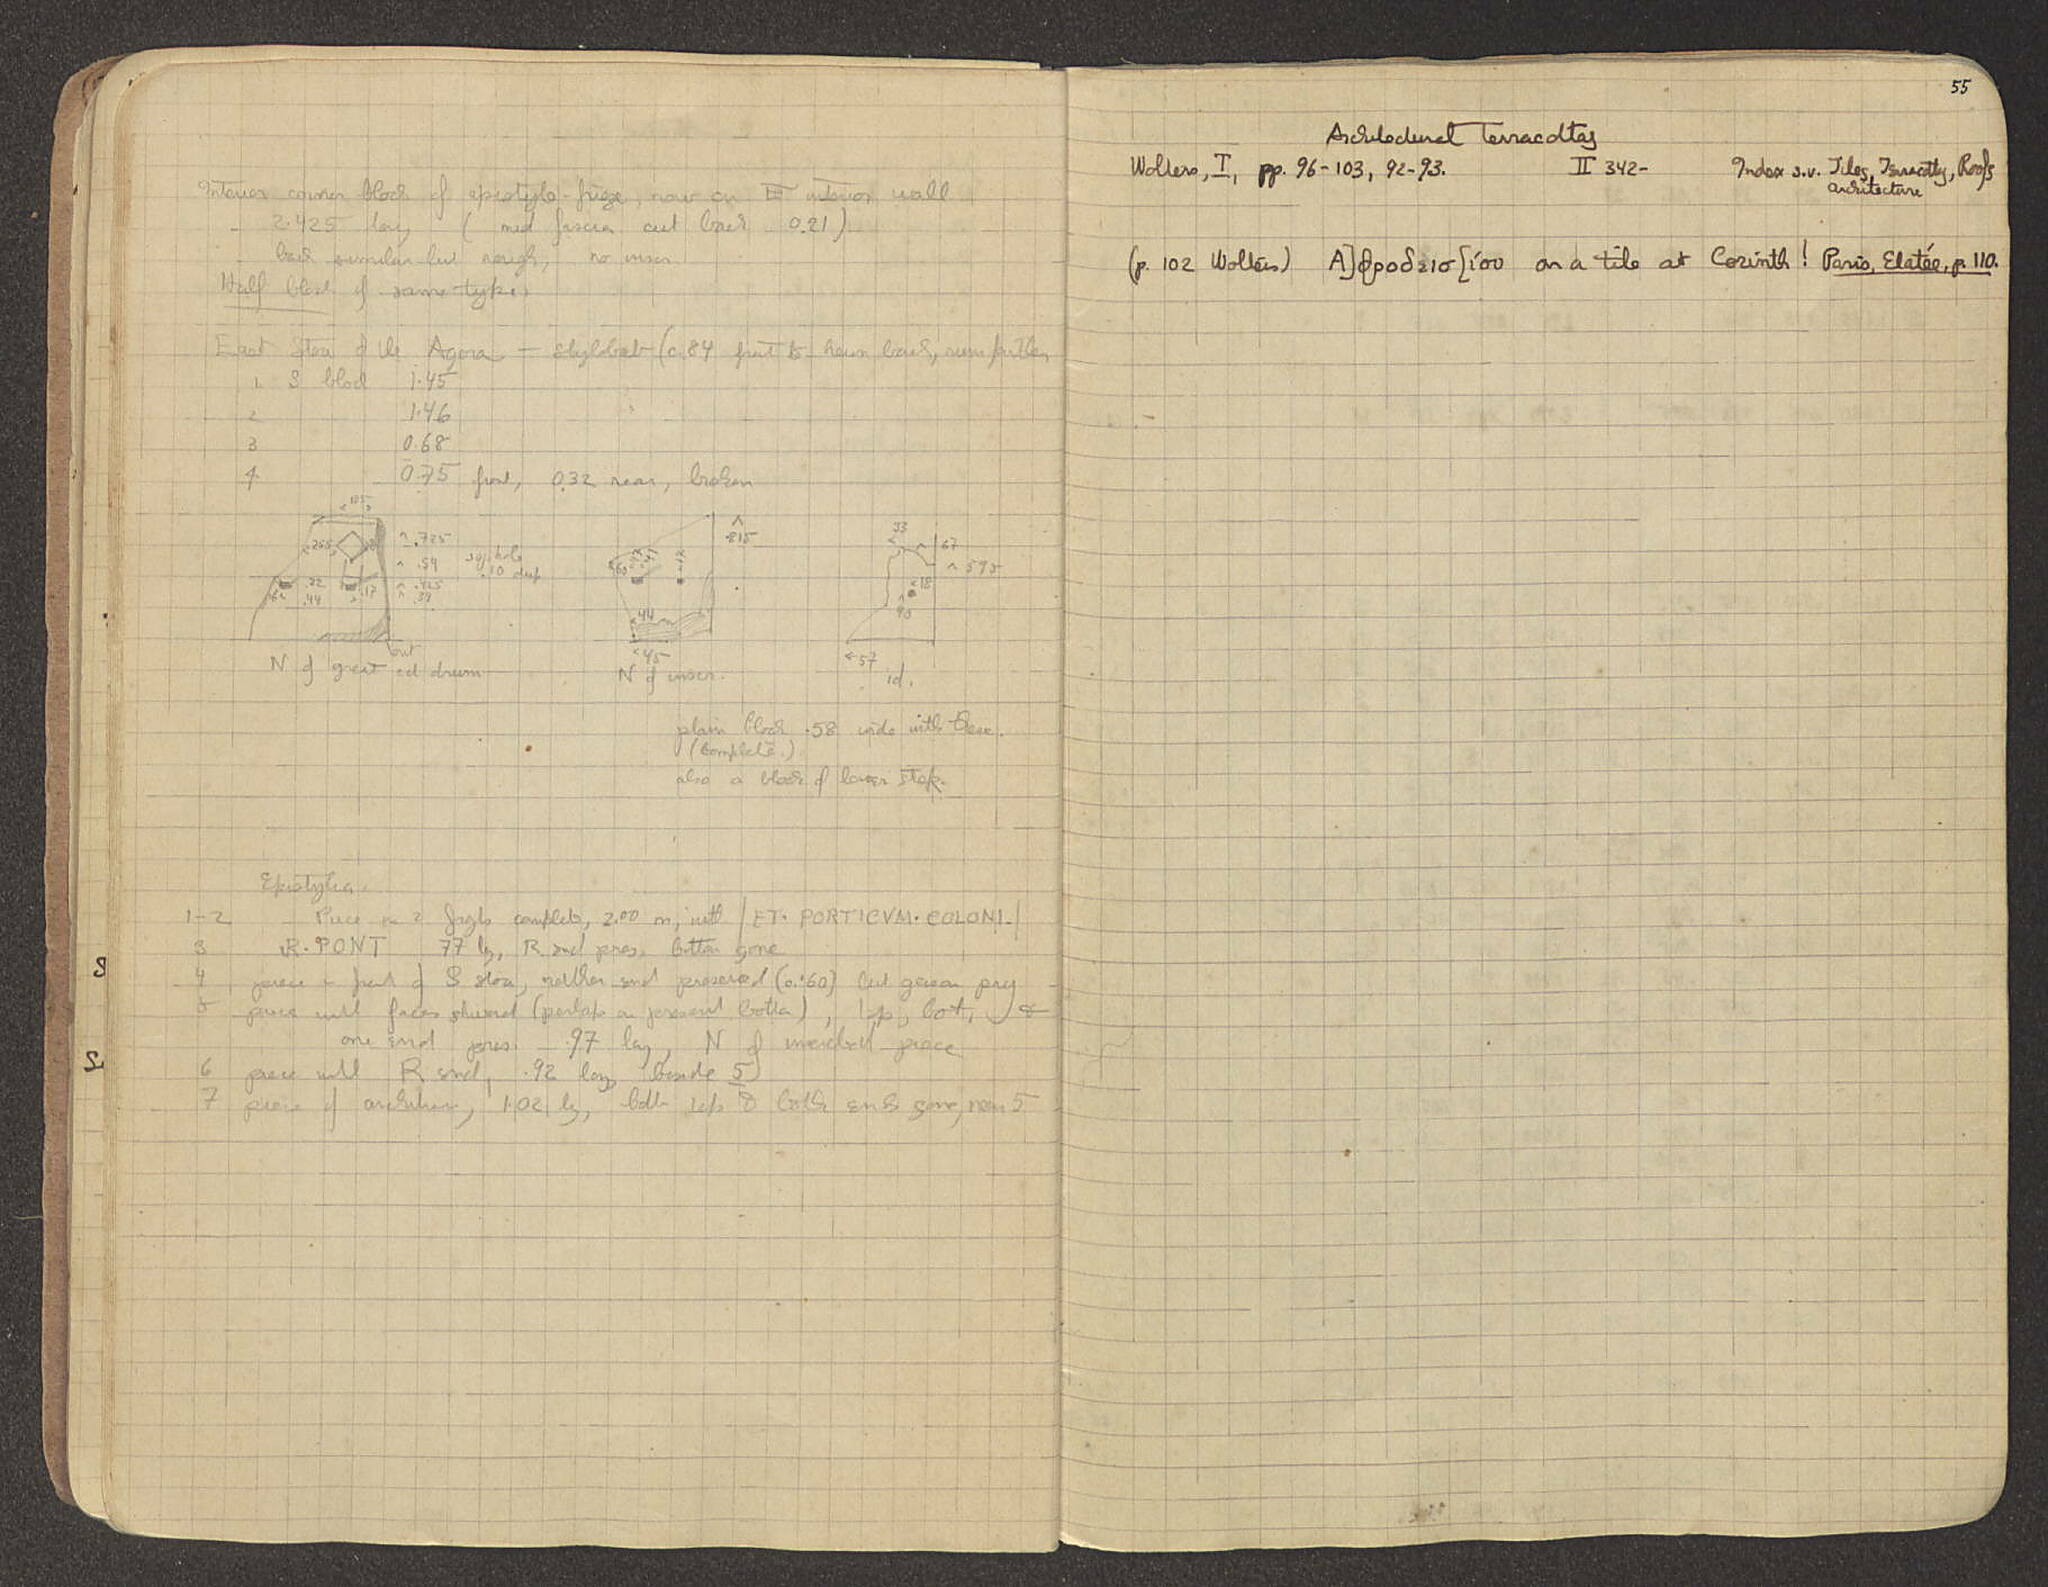 Interior corner block of epistyle-frieze, now on E interior wall
2.425 long (med fascia cut back 0.21)
back similar but rough, no inscr.
Half block of same type.
East Stoa of the Agora — stylobate (c.84 front to hewn back, runs further
1. S block 1.45
2 1.46
3 0.68
4. 0.75 front, 0.32 rear, broken
.185
.255
.725
.59
.425
.39
sq. hole .10 deep
.22
.44
.17
cut
N of great ed drum
815
44
45
N of inscr.
33
67
595
18
90
57
id.
plain block .58 wide with these.
(Complete.)
also a block of lower step.
Epistylia.
1-2 Piece in 2 fragts complete, 2.00 m, with | ET · PORTICVM · COLONI- |
3 R · PONT 77 lg, R end pres. bottom gone
4 piece in front of S stoa, neither end preserved (c. .60)
5 piece with faces shivered (perhaps on present bottom), top, bot, &
one end pres. .97 long, N of inscribed piece
6 piece with R end, .92 long, beside 5
7 piece of architrave, 1.02 lg, both ends gone, near 5
S
S
55
Architectural Terracottas
Wolters, I, pp. 96-103, 92-93. II 342- Index s.v. Tiles, Terracottas, Roofs
architecture
(p. 102 Wolters) Α]φροδεισ[ίου on a tile at Corinth! Paris, Elatée, p. 110.